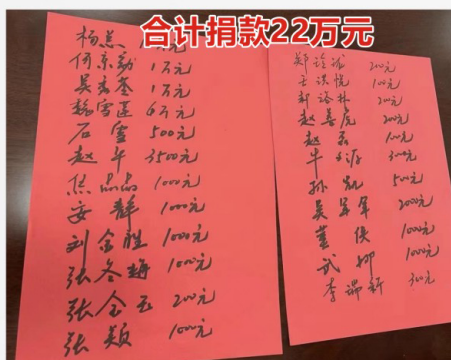 合计捐款22万元
杨 元
何京勐 1万元
吴 1万元
杨雪莲 6万元
石雪 500元
赵华 3500元
焦晶晶 1000元
安静 1000元
刘金胜 1000元
张冬梅 1000元
张全玉 200元
张颖 1000元
郑 200元
王洪悦 100元
郝洛林 200元
赵善虎 200元
赵磊 100元
毕 300元
孙凯 500元
吴军军 2000元
董侠 1000元
武娜 1000元
李瑞新 300元